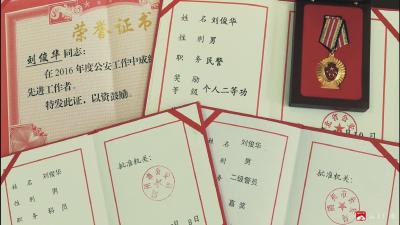 荣誉证书
刘俊华同志：
在2016年度公安工作中成绩
先进工作者。
特发此证，以资鼓励。
姓名 刘俊华
性别 男
职务 民警
奖励
等级 个人二等功
姓名 刘俊华
性别 男
职务 科员
批准机关：
刘俊华
男
二级警员
嘉奖
批准机关：